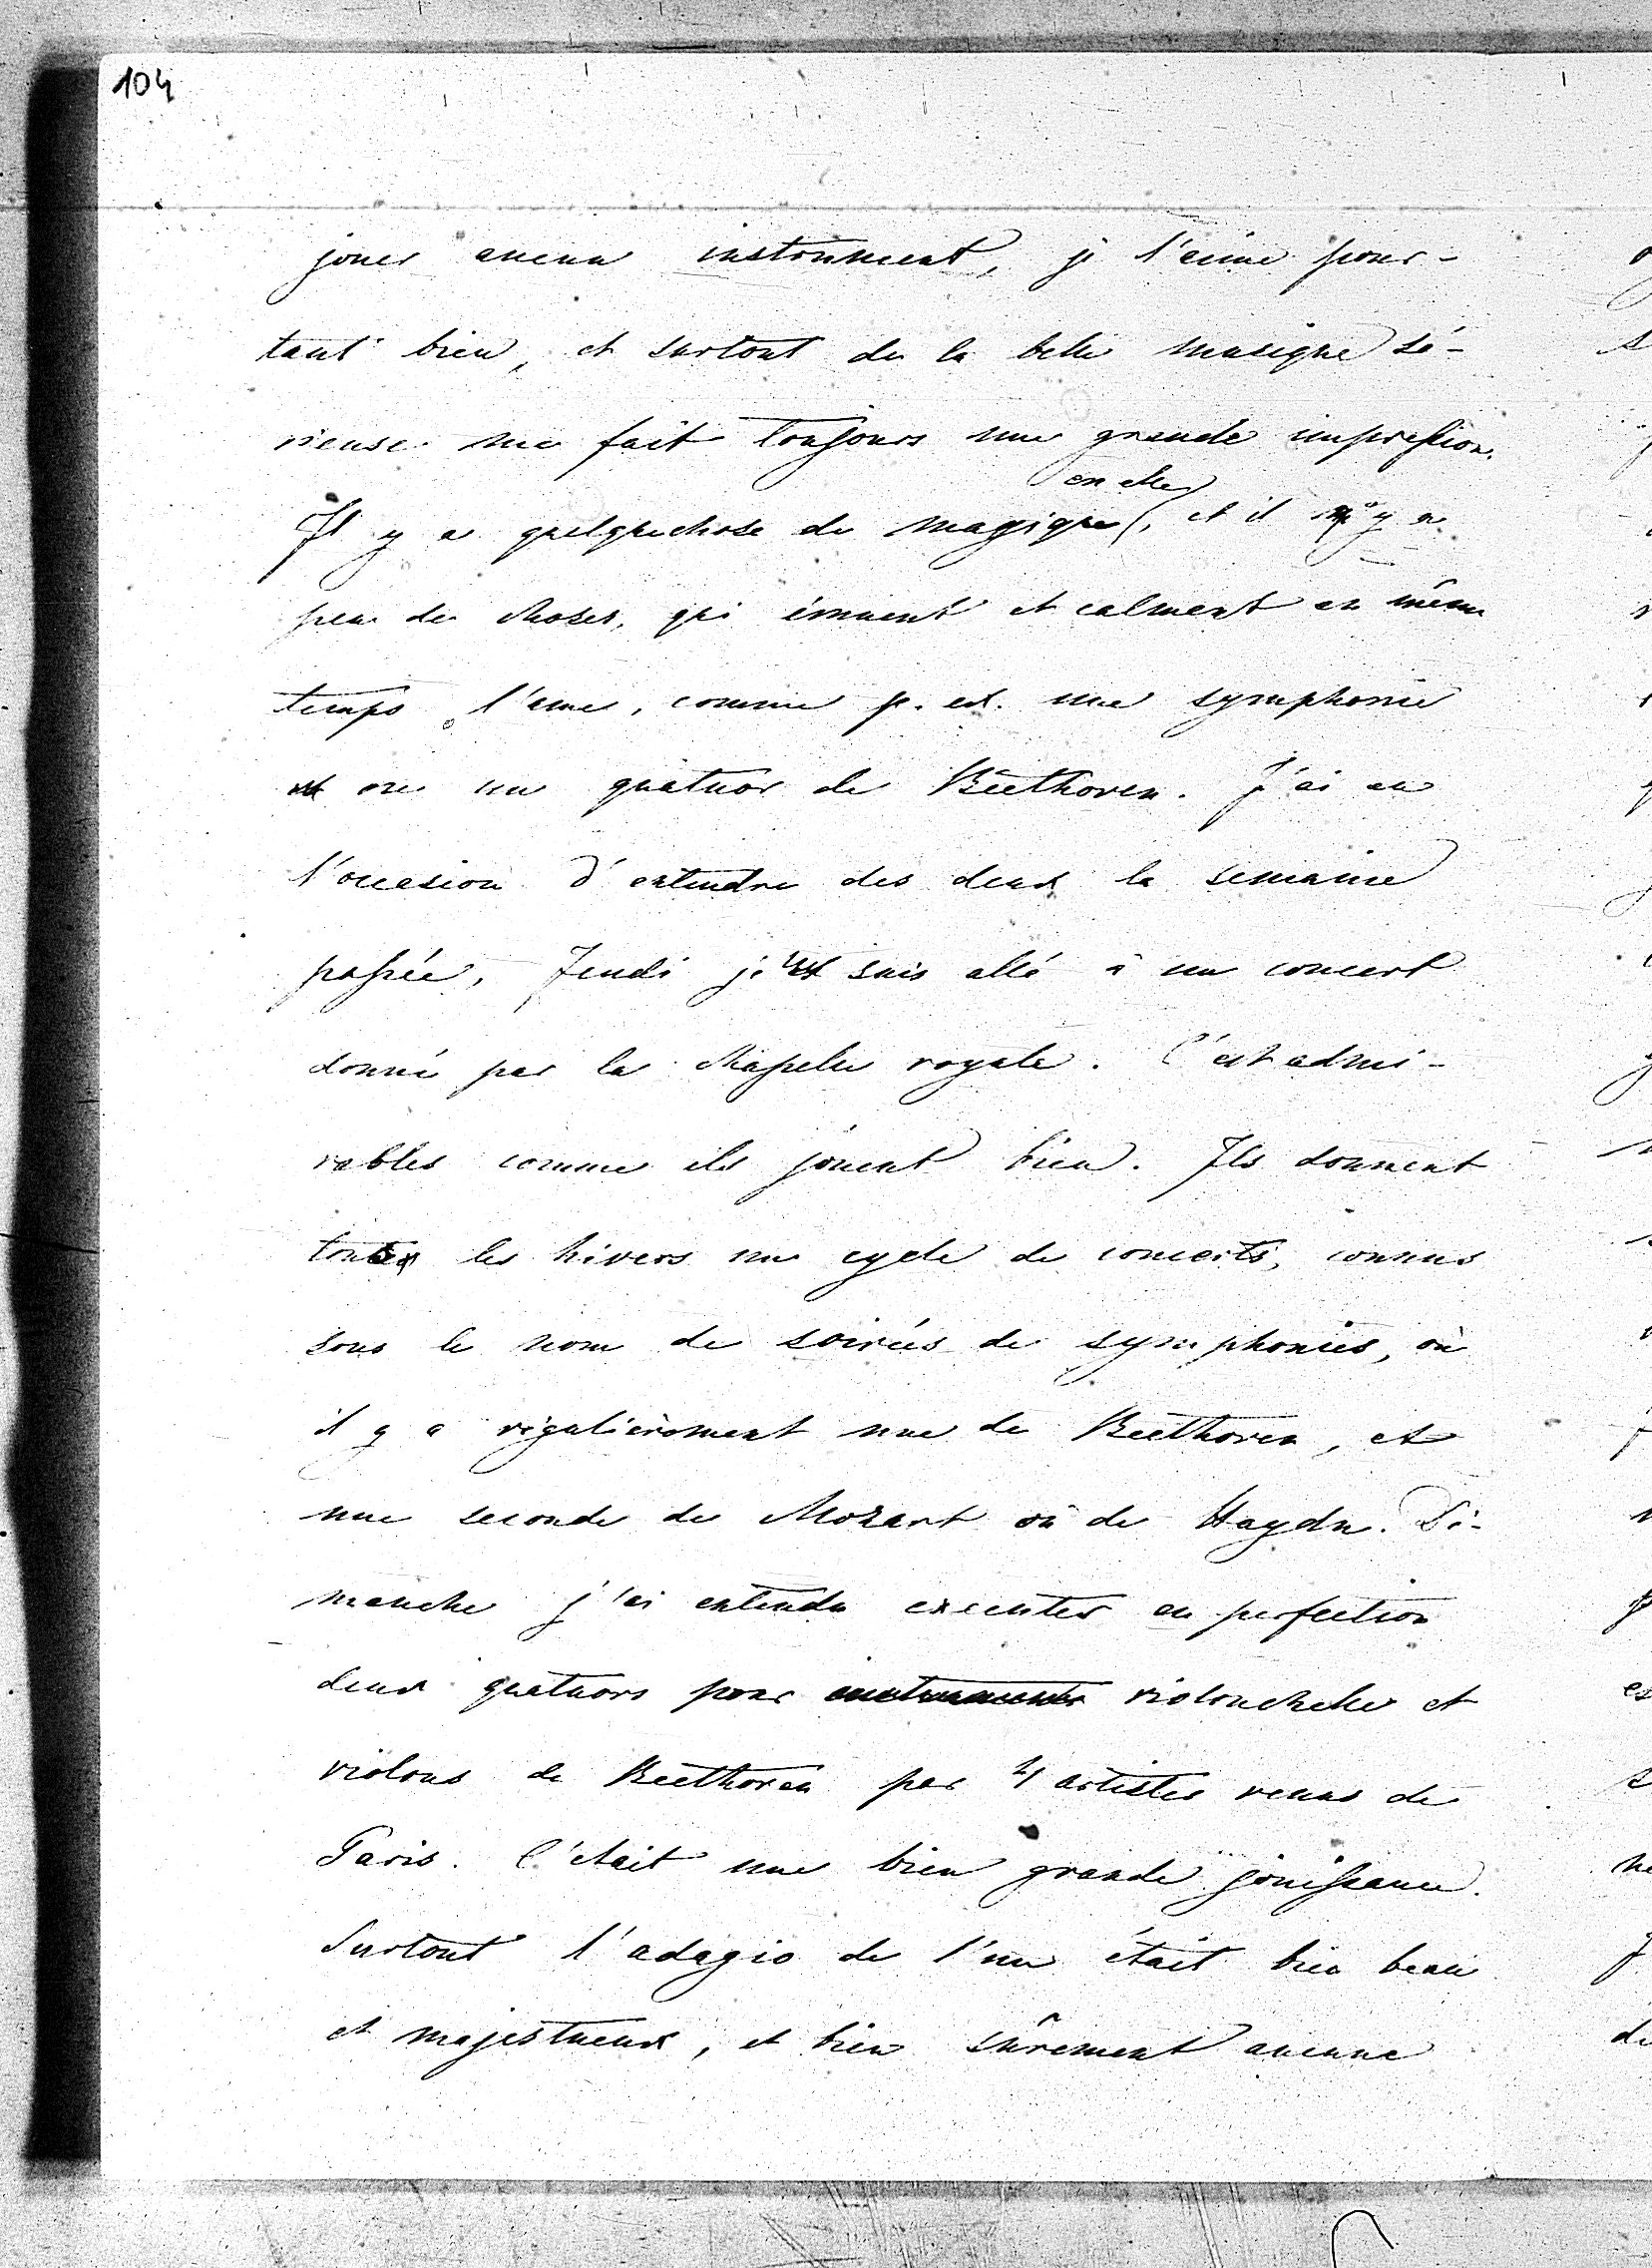 104
jouer aucun instrument, je l'aime pour-
tant bien, et surtout de la belle musique sé-
rieuse me fait toujours une grande impression.
en elle
Il y a quelquechose de magique, et il n'y a
peu de choses, qui émuent et calment en même
temps l'ame, comme p. ex. une symphonie
ou un quatuor de Beethoven. J'ai eu
l'occasion d'entendre des deux la semaine
passée, Jeudi je suis allé à un concert
donné par la chapelle royale. C'est admi-
rables comme ils jouent bien. Ils donnent
tous les hivers un cycle de concerts, connus
sous le nom de soirées de symphonies, où
il y a régulièrement une de Beethoven, et
une seconde de Mozart où de Haydn. Di-
manche j'ai entendu executer en perfection
deux quatuors pour instruments violonchelle et
violons de Beethoven par 4 artistes venus de
Paris. C'était une bien grande jouissance.
Surtout l'adagio de l'un était bien beau
et majestueux, et bien sûrement aucune